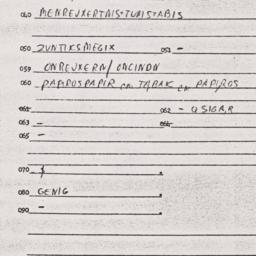 040 MENREUXERTNIS+TURIS+ABIS
050 ZUNTIKSMEGIX 051 -
059 ONREUXERN/ONCINDN
060 PAPIROSPAPIR en TABAK en PAPIROS
061 062 - O SIGAR
063 -
065 -
070 $
080 GENIG
090 -